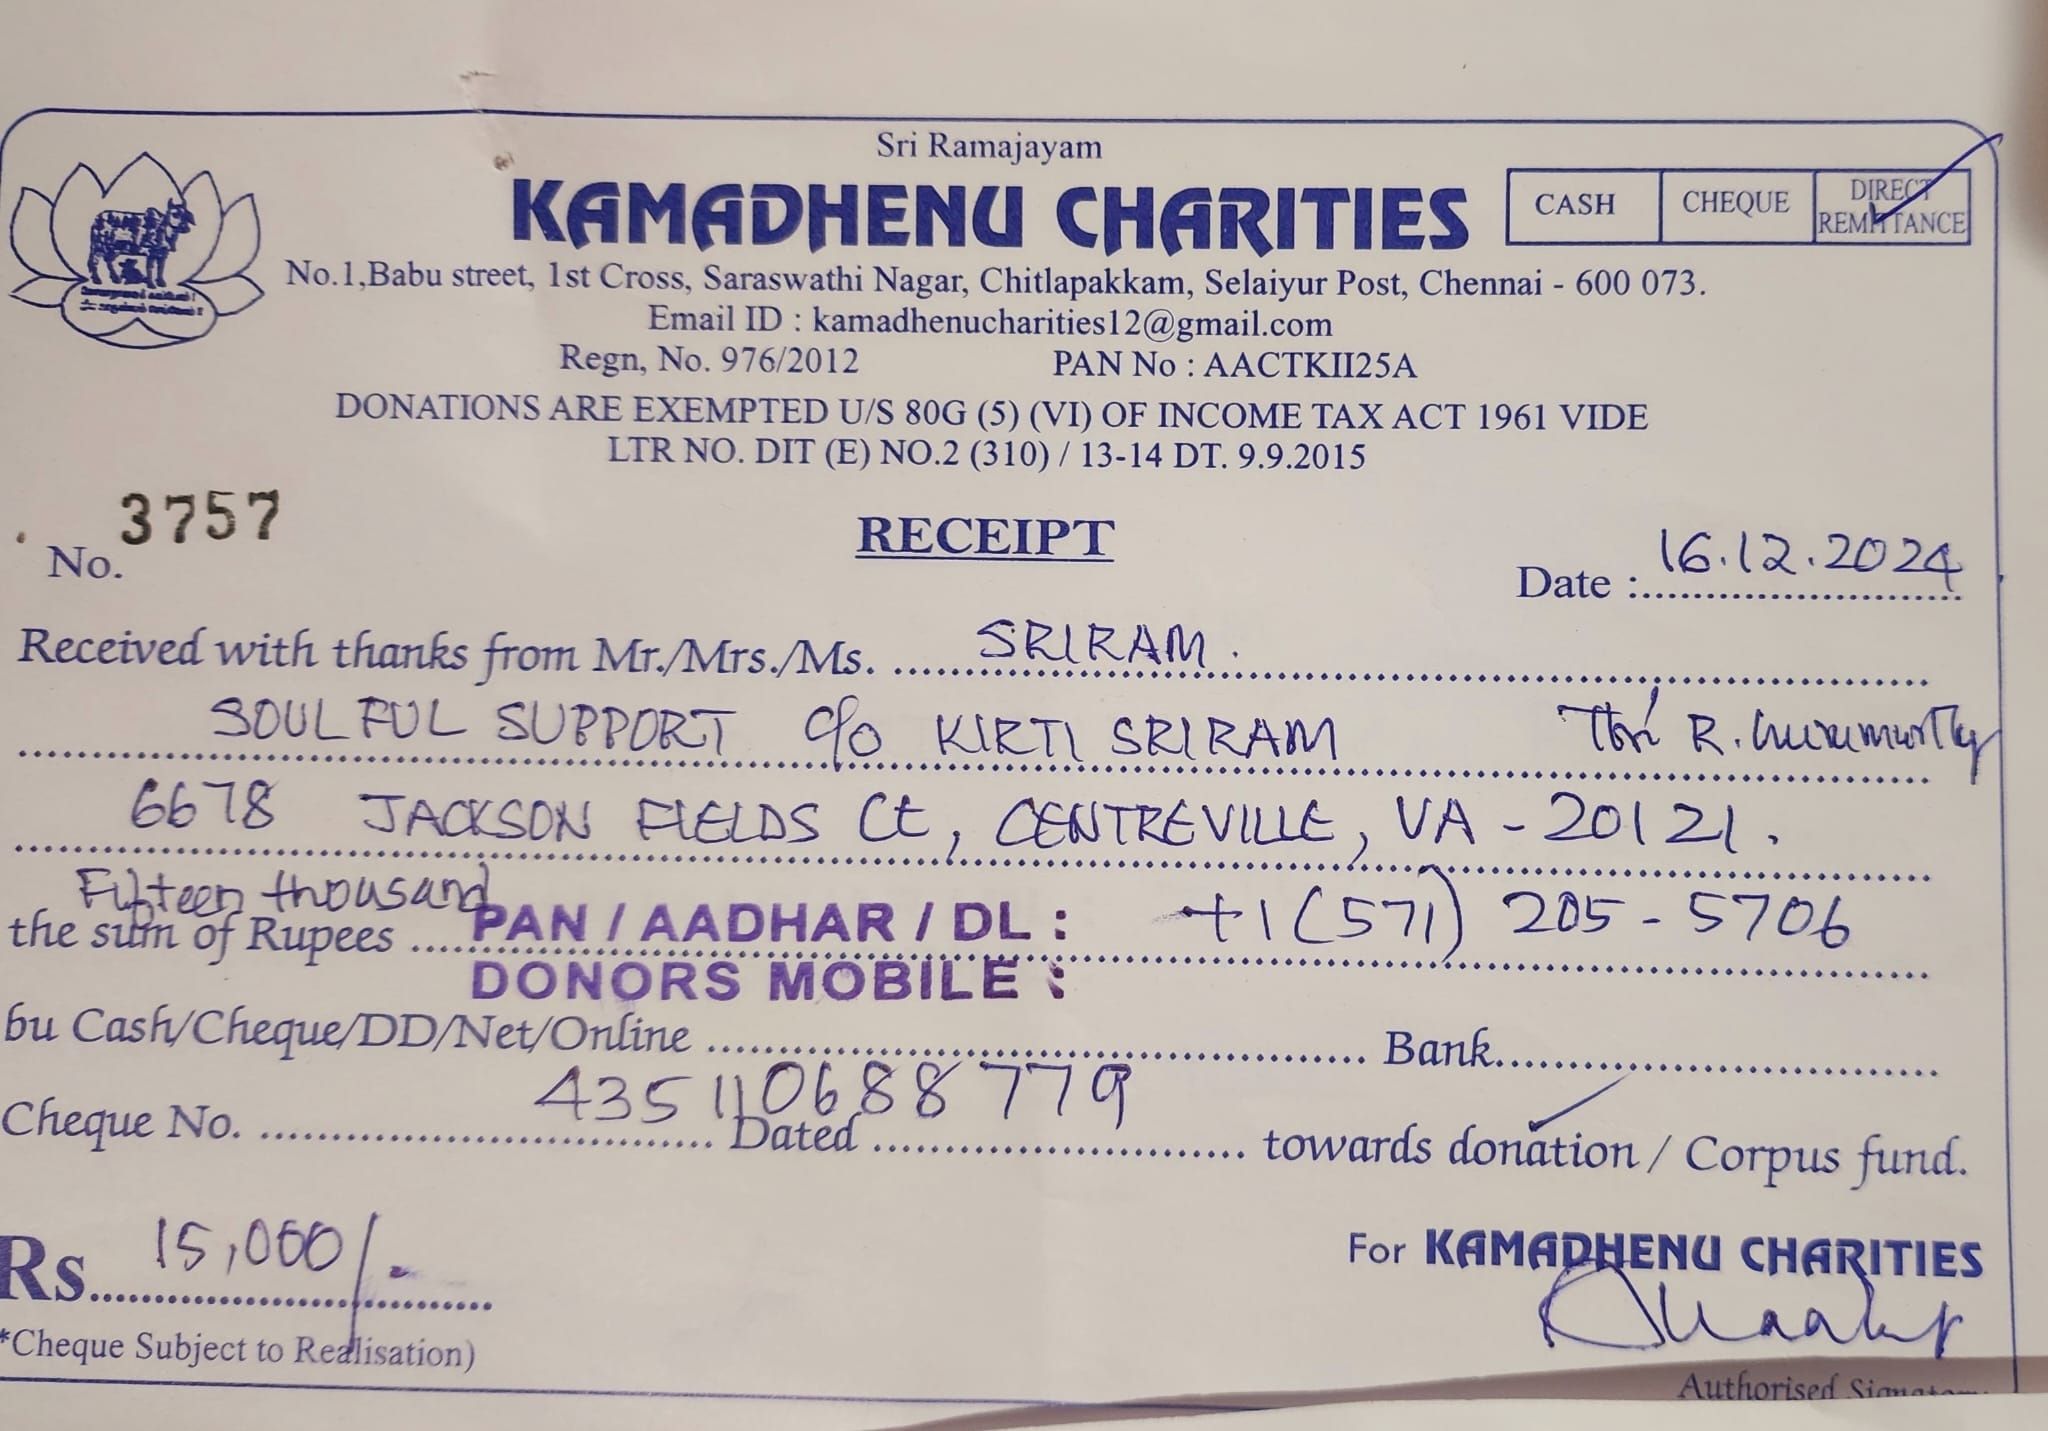 Sri Ramajayam
KAMADHENU CHARITIES
CASH CHEQUE DIRECT REMITTANCE
No.1,Babu street, 1st Cross, Saraswathi Nagar, Chitlapakkam, Selaiyur Post, Chennai - 600 073.
Email ID : kamadhenucharities12@gmail.com
Regn, No. 976/2012 PAN No : AACTKII25A
DONATIONS ARE EXEMPTED U/S 80G (5) (VI) OF INCOME TAX ACT 1961 VIDE
LTR NO. DIT (E) NO.2 (310) / 13-14 DT. 9.9.2015
No. 3757
RECEIPT
Date : 16.12.2024
Received with thanks from Mr./Mrs./Ms. SRIRAM.
SOULFUL SUPPORT c/o KIRTI SRIRAM R.
6678 JACKSON FIELDS Ct, CENTREVILLE, VA - 20121.
Fifteen thousand
the sum of Rupees PAN / AADHAR / DL : +1 (571) 205 - 5706
DONORS MOBILE :
bu Cash/Cheque/DD/Net/Online Bank
435110688779
Cheque No. Dated towards donation / Corpus fund.
Rs. 15,000/-
For KAMADHENU CHARITIES
*Cheque Subject to Realisation)
Authorised Signatory